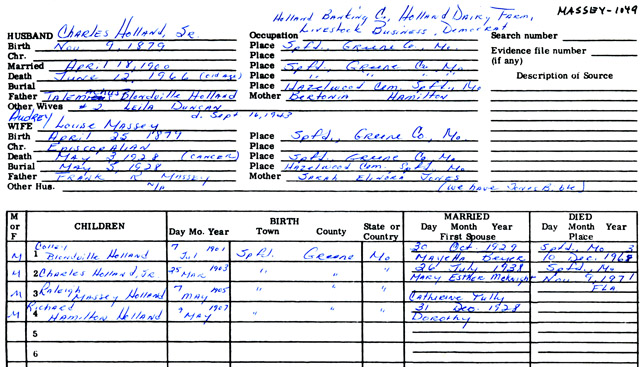 MASSEY-1049
Holland Banking Co, Holland Dairy Farm,
Livestock Business, Democrat
HUSBAND Charles Holland, Sr. Occupation
Birth Nov 9, 1879 Place Spfd., Greene Co, Mo. Search number
Chr. Place Evidence file number
Married April 18, 1900 Place Spfd., Greene Co., Mo. (if any)
Death June 12, 1966 (old age) Place " " " Description of Source
Burial Place Hazelwood Cem, Spfd., Mo
Father Blondville Holland Mother Bertonia Hamilton
Other Wives #2 Leila Duncan d. Sept 16, 1943
Audrey
WIFE Louise Massey
Birth April 25 1877 Place Spfd., Greene Co, Mo.
Chr. Episcopalian Place
Death May 3, 1928 (cancer) Place Spfd., Greene Co. Mo.
Burial May 5, 1928 Place Hazelwood Cem, Spfd, Mo
Father Frank R Massey Mother Sarah Elinora Jones
Other Hus. (We have Jones Bible)
M or F CHILDREN BIRTH MARRIED DIED
Day Mo. Year Town County State or Country Day Month Year First Spouse Day Month Year Place
M 1 Blondville Holland 7 Jul 1901 Spfd. Greene Mo 30 Oct. 1929 Mayetta Spfd, Mo 10 Dec. 1968
M 2 Charles Holland, Jr. 25 Mar 1903 " " " 26 July 1928 Mary Esther McKnight Spfd., Mo Nov 9, 1971
M 3 Raleigh Massey Holland 7 May 1905 " " " Catherine Tully FLA
M 4 Richard Hamilton Holland 9 May 1907 " " " 31 Dec. 1928 Dorothy
5
6